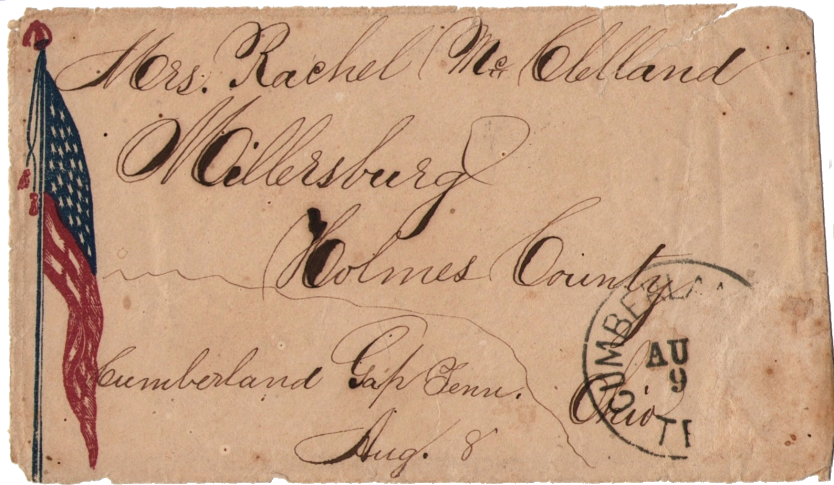 Mrs. Rachel Mc Clelland
Millersburg
Holmes County
Ohio
Cumberland Gap Tenn.
Aug. 8
CUMBERLA
AU
9
TE